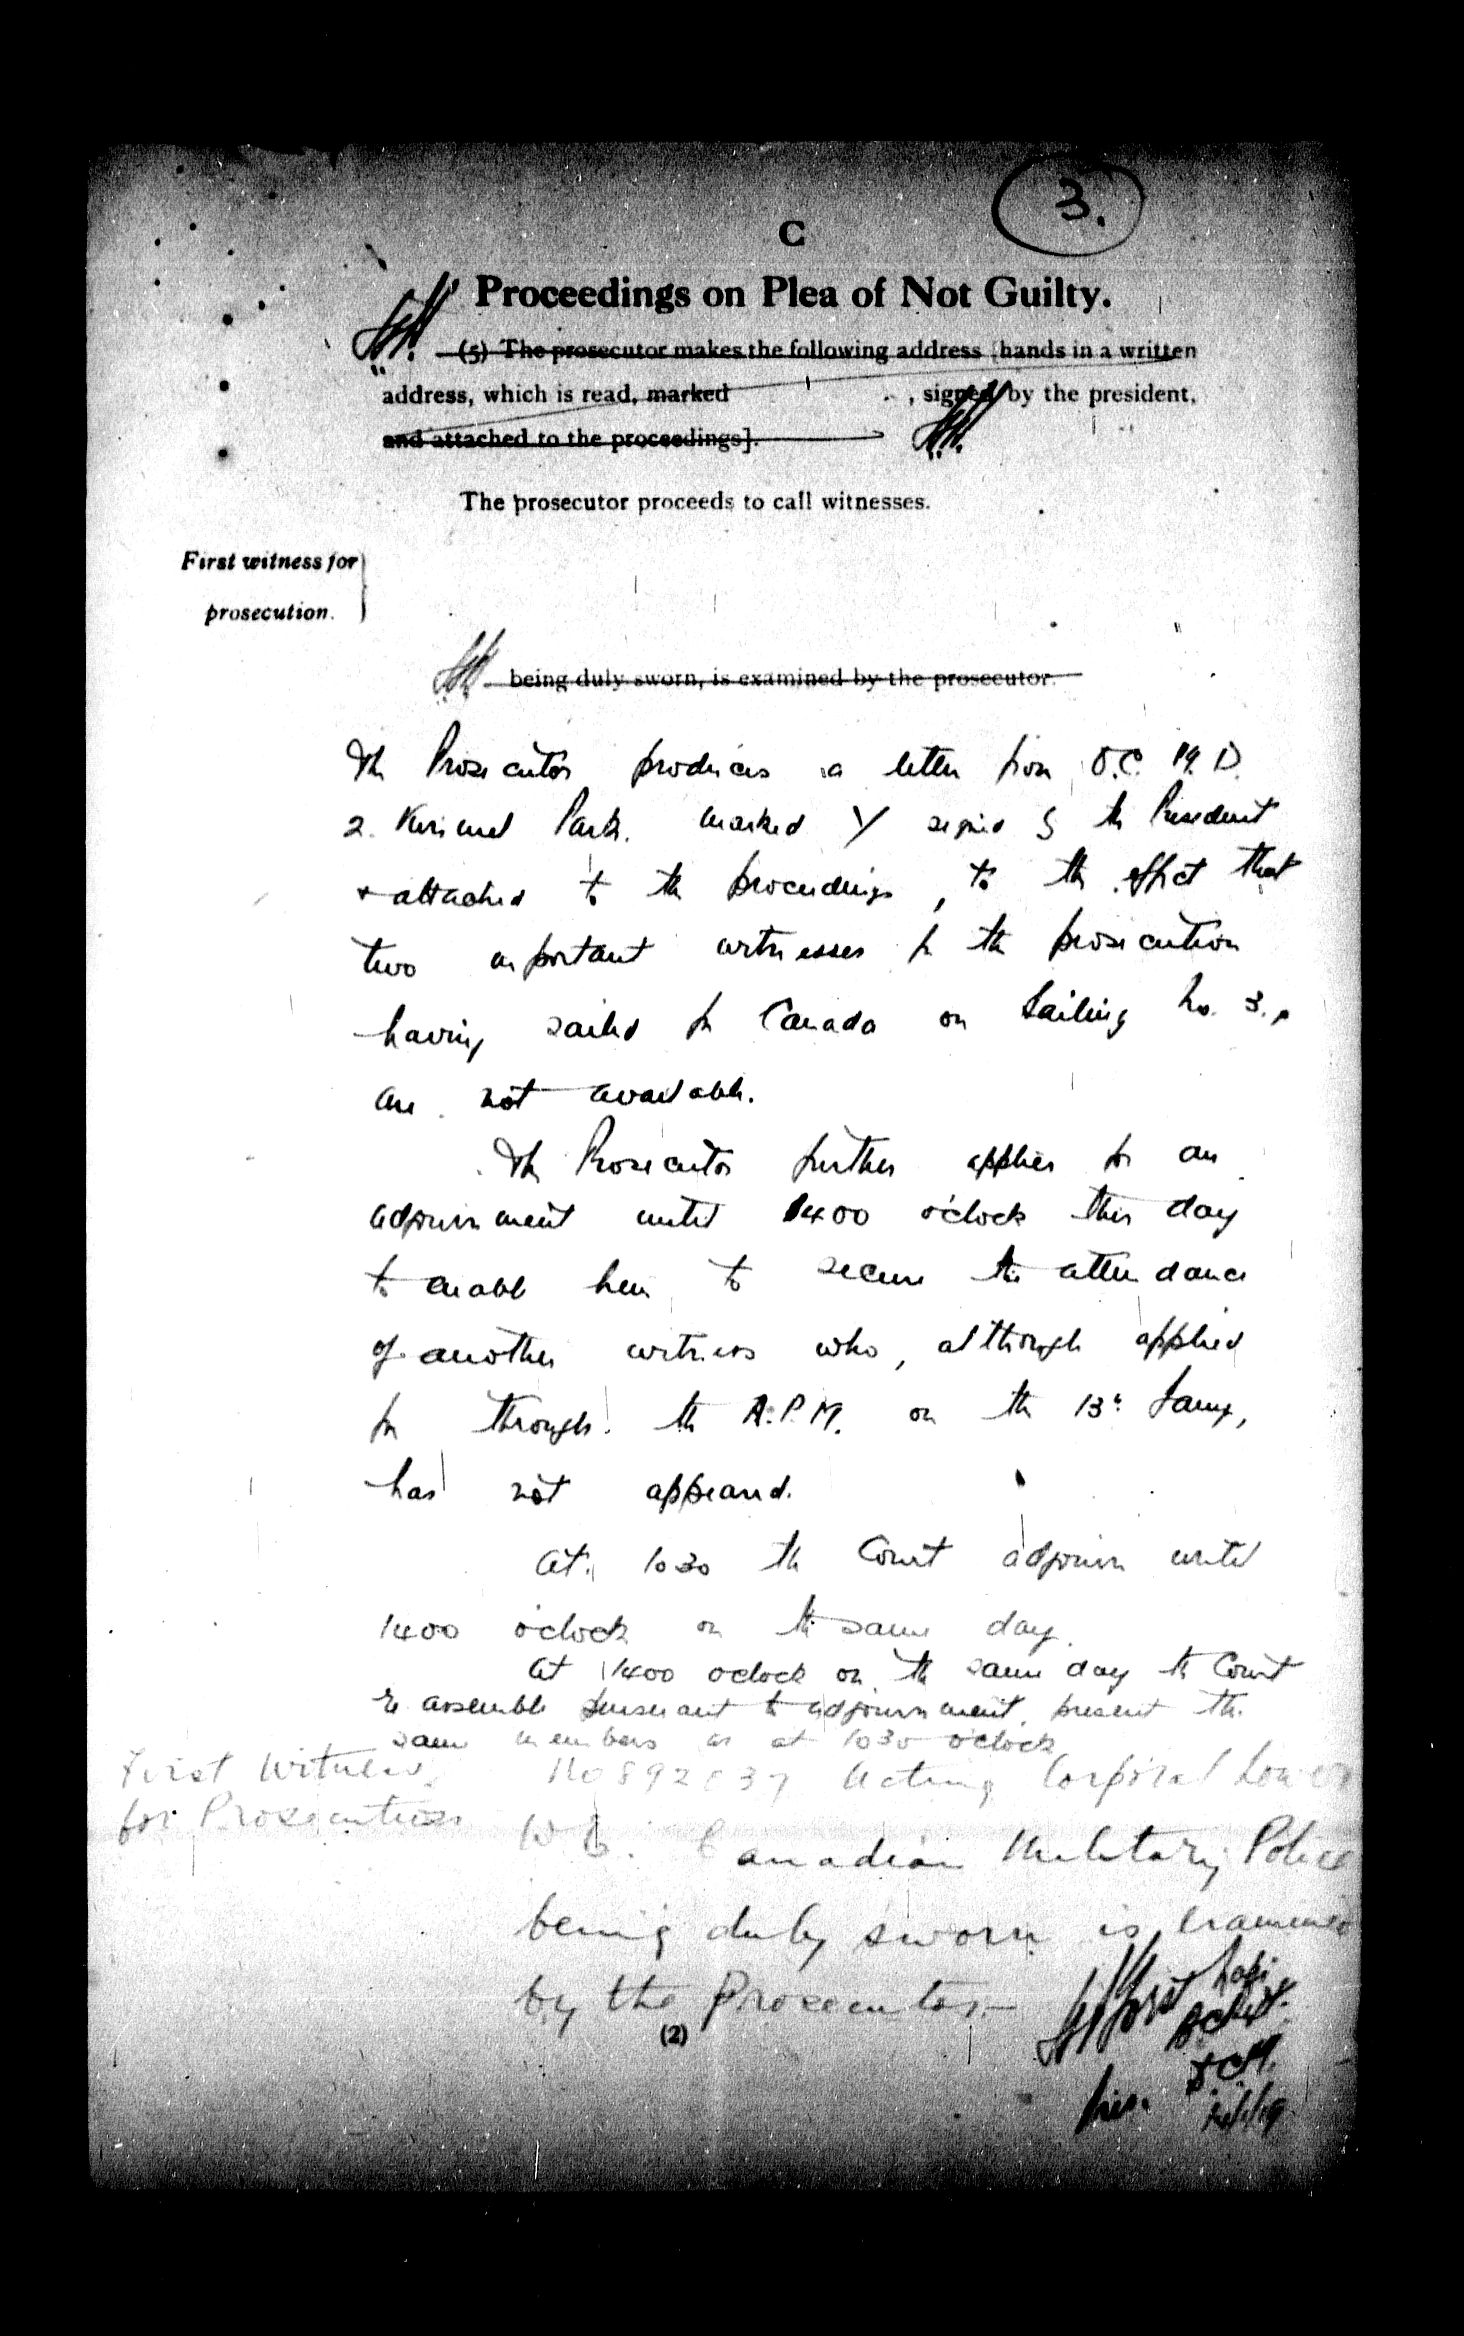 3.
C
Proceedings on Plea of Not Guilty.
(5) The prosecutor makes the following address [hands in a written
address, which is read, marked , signed by the president,
and attached to the proceedings].
The prosecutor proceeds to call witnesses.
First witness for
prosecution.
being duly sworn, is examined by the prosecutor.
The Prosecutor produces a letter from O.C. M.D.
2. Kinmel Park. marked Y signed by the President
+ attached to the proceedings, to the effect that
two important witnesses for the prosecution
having sailed for Canada on Sailing No. 3.,
are not available.
The Prosecutor further applies for an
adjournment until 1400 o'clock this day
to enable him to secure the attendance
of another witness who, although applied
for through the A.P.M. on the 13th Jany,
has not appeared.
At 1030 the Court adjourn until
1400 o'clock on the same day.
At 1400 oclock on the same day the Court
re assemble pursuant to adjournment, present the
same members as at 1030 o'clock
First Witness
for Prosecution
No 892037 Acting Corporal
W. Canadian Military Police
being duly sworn is examined
by the Prosecutor.—
(2)
Pres.